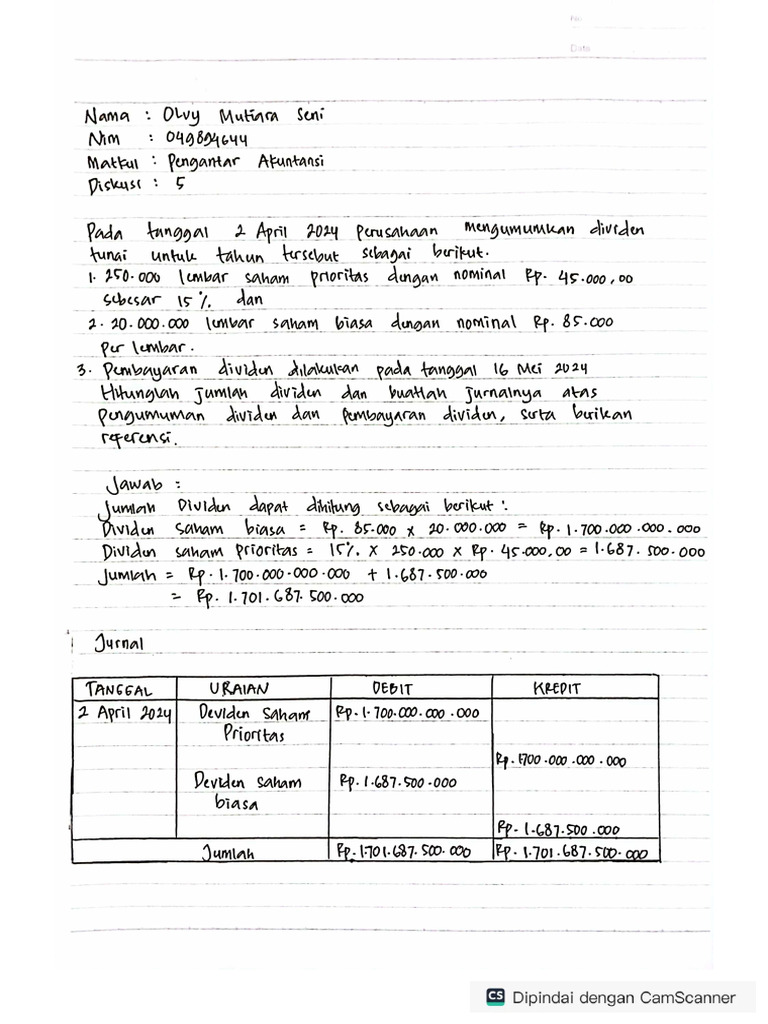 No.
Date
Nama : Olvy Mutiara Seni
Nim : 049894644
Matkul : Pengantar Akuntansi
Diskusi : 5
Pada tanggal 2 April 2024 Perusahaan mengumumkan dividen
tunai untuk tahun tersebut sebagai berikut.
1. 250.000 lembar saham prioritas dengan nominal Rp. 45.000,00
sebesar 15% dan
2. 20.000.000 lembar saham biasa dengan nominal Rp. 85.000
per lembar.
3. Pembayaran dividen dilakukan pada tanggal 16 Mei 2024
Hitunglah jumlah dividen dan buatlah jurnalnya atas
pengumuman dividen dan pembayaran dividen, serta berikan
referensi.
Jawab :
Jumlah Dividen dapat dihitung sebagai berikut :
Dividen saham biasa = Rp. 85.000 x 20.000.000 = Rp. 1.700.000.000.000
Dividen saham prioritas = 15% x 250.000 x Rp. 45.000,00 = 1.687.500.000
Jumlah = Rp. 1.700.000.000.000 + 1.687.500.000
= Rp. 1.701.687.500.000
Jurnal
TANGGAL URAIAN DEBIT KREDIT
2 April 2024 Deviden Saham Rp. 1.700.000.000.000
Prioritas
Rp. 1700.000.000.000
Deviden saham Rp. 1.687.500.000
biasa
Rp. 1.687.500.000
Jumlah Rp. 1.701.687.500.000 Rp. 1.701.687.500.000
CS Dipindai dengan CamScanner